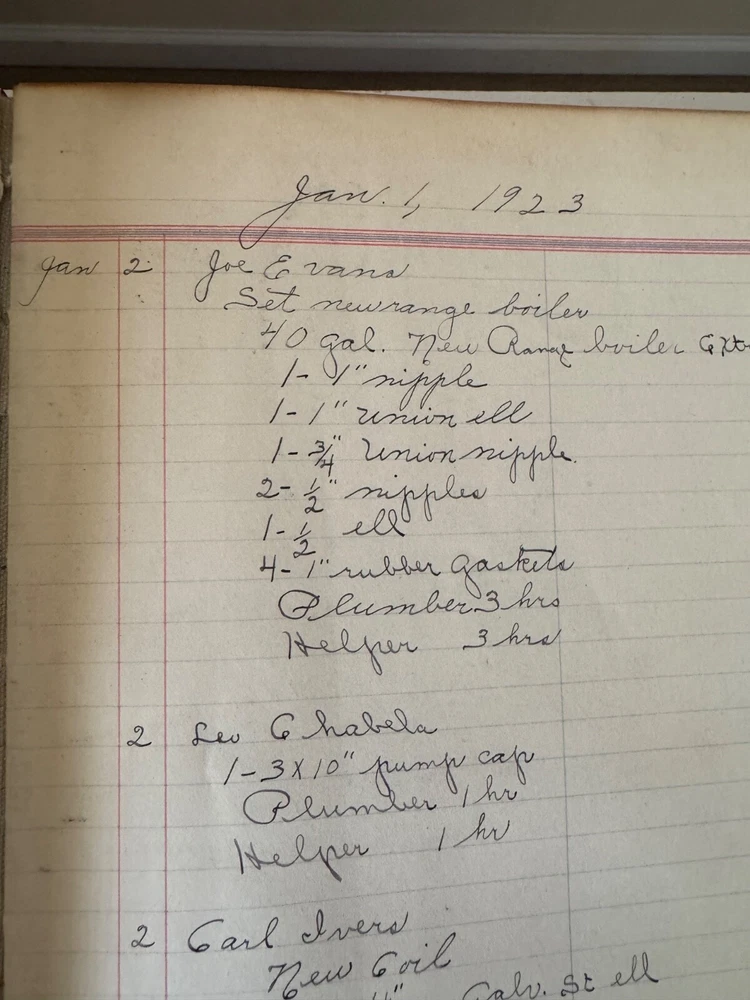 Jan. 1, 1923
Jan 2 Joe Evans
Set new range boiler
40 gal. New Range boiler
1- 1" nipple
1- 1" Union ell
1- 3/4" Union nipple.
2- 1/2" nipples
1- 1/2 ell
4- 1" rubber gaskets
Plumber 3 hrs
Helper 3 hrs
2 Leo Chabela
1- 3 X 10" pump cap
Plumber 1 hr
Helper 1 hr
2 Carl Ivers
New Coil
Galv. St ell